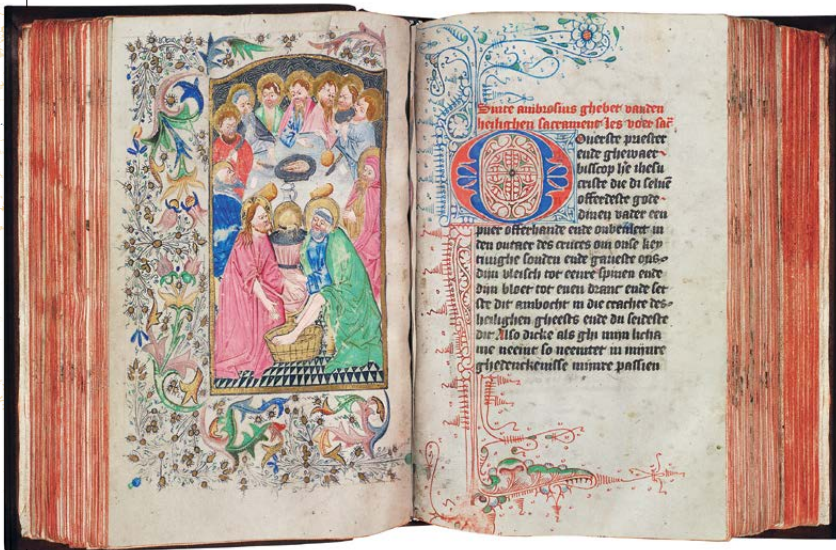 Sinte ambrosius ghebet vanden
heilighen sacrament Ies voer sac̄
Ouerste priester
ende ghewaer
bisscop h̄e ihesu
criste die di seluē
offerdeste gode
dinen vader een
puer offerhande ende onbeulect in
den outaer des cruces om onse key
tiuighe sonden ende gaueste ons
dijn vleisch tot eenre spisen ende
dijn bloet tot enen dranc ende set
ste dit ambocht in die crachte des
heilighen gheests ende du seideste
dit Also dicke als ghi mijn licha
me neemt so neemtet in mijnre
ghedenckenisse mijnre passien